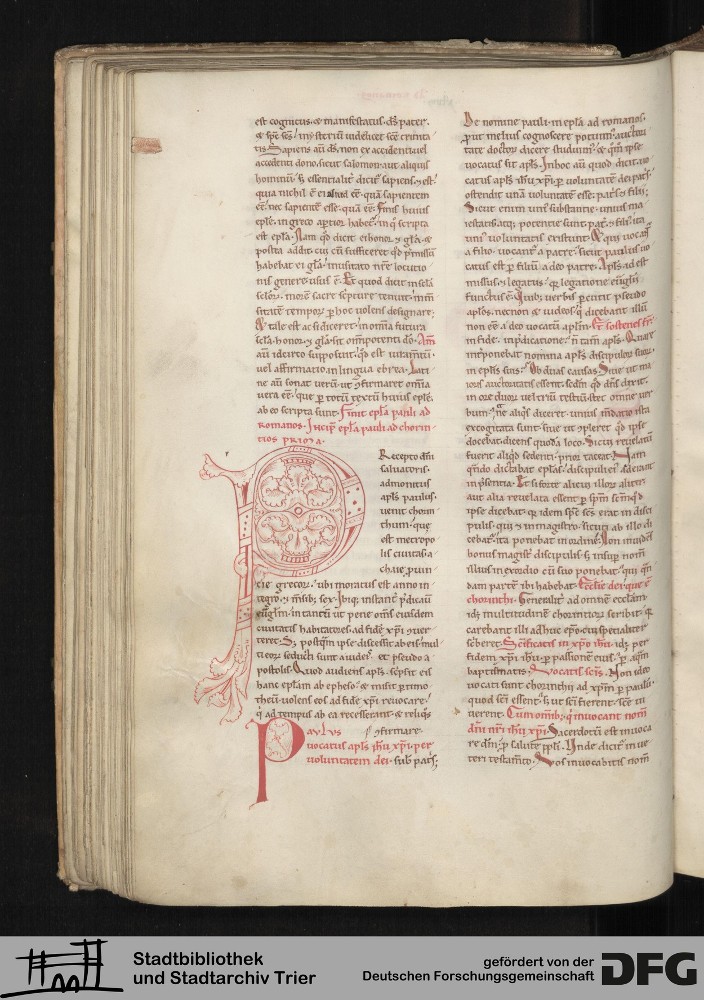 est cognitus. & manifestatus. ds pater.
& sps scs. mysteriū
tis. Sapiens aū ds non ex accidenti uel
accedenti dono. sicut salomon aut aliquis
hominū. s; essentialit dicit sapiens. & est.
quia nichil ē ei aliud eē. quā sapientem
eē. nec sapientē esse. quā eē. Finis huius
eple. in greco aptior habet. in q scripta
est epla. Nam qd dicit & honor & gla. &
posita addit cui cū sufficeret qd pmissū
habebat ei gla. inusitato nre locutio
nis genere usus ē. Et quod dicit in scla
sclor. more sacre scripture
situtē tempor p hoc uolens designare.
Ac tale est ac si diceret. in omia futura
scla. honor & gla sit omipotenti do. Am
aū idcirco supposuit. qd est iuramtū.
uel affirmatio in lingua ebrea. Lati
ne aū sonat uerū. ut gfirmaret omia
uera eē. que p totū textū huius eple.
ab eo scripta sunt. Finit epla pauli ad
romanos. Incip epla pauli ad chorin
tios prima.
Recepto dni
saluatoris.
admonitus
apls paulus.
uenit chorin
thum. que
est metropo
lis ciuitas a
chaie puin
cie grecor. ubi moratus est anno in
tegro. & msib; sex. ibiq; instant pdicauit
eugliū. in tantū ut pene oms eiusdem
ciuitatis habitatores. ad fidē xpi guer
teret. S; postqm ipse discessit ab eis. mul
ti eor seducti sunt a iudeis. et pseudo a
postolis. Quod audiens apls. scripsit eis
hanc eplam ab epheso. & misit p timo
theū. uolens eos ad fidē xpi reuocare.
q ad tempus ab ea recesserant. & reliqs
Paulus gfirmare.
uocatus apls ihu xpi. per
uoluntatem dei. sub patris;
De nomine pauli. in epla ad romanos.
put melius cognoscere potuim. auctori
tate doctor dicere studuim. & qm ipse
uocatus sit apls. In hoc aū quod dicit uo
catus apls ihu xpi. p uoluntatē dei patris.
ostendit unā uoluntatē esse. patris & filii.
Sicut enim uni substantie. unius ma
iestatis atq; potentie sunt pat & fili. ita
uni uoluntatis existunt. & qui uocat
a filio. uocant a patre. sicut paulus uo
catus est p filiū a deo patre. Apls. id est
missus. & legatus. q legatione euglii
functus ē. Quib; uerbis pcutit pseudo
aplos. necnon & iudeos. q dicebant illū
non eē a deo uocatū aplm. Et sostenes fr.
in fide. in pdicatione. n tam apls. Quare
int ponebat nomina apls discipulor suor.
in eplis suis. Ob duas causas. Siue ut ma
ioris auctoritatis essent. sedm qd dns dixit.
in ore duor uel triū testiū. stet omne uer
bum. ne aliqs diceret. unius mdatio ista
excogitata sunt. siue ut opleret qd ipse
docebat. dicens quodā loco. Si cui reuelatū
fuerit aliqd sedenti. prior taceat. Nam
qndo dictabat eplas. discipuli ei aderant
in psentia. Et si forte alicui illor alit
aut alia reuelata essent p spm scm. qd
ipse dicebat. qr idem sps scs erat in disci
pulis. qui & in magistro. sicuti ab illo di
cebat. ita ponebat in ordine. Non inuidet
bonus magist discipulis. s; insup nom
illius in exordio cū suo ponebat. qui qn
dam parte ibi habebat. Ecclie dei que ē
chorinthi. Generalit ad omnē ecclam.
id; multitudinē chorintior scribit. qr
carebant illi adhuc epo. cui specialiter
scberet. Scificatis in xpo ihu. id; per
fidem xpi ihu. p passionē eius. p aqm
baptismatis. Vocatis scis. Non ideo
uocati sunt chorinthii ad xpm p paulū.
quod sci essent. s; ut sci fierent. sce ui
uerent. Cum omib; q inuocant nom
dni nri ihu xpi. Sacerdotū est inuoca
re dm. p salute ppli. Unde dicit in ue
teri testamto. Vos inuocabitis nom
Stadtbibliothek
und Stadtarchiv Trier
gefördert von der
Deutschen Forschungsgemeinschaft
DFG